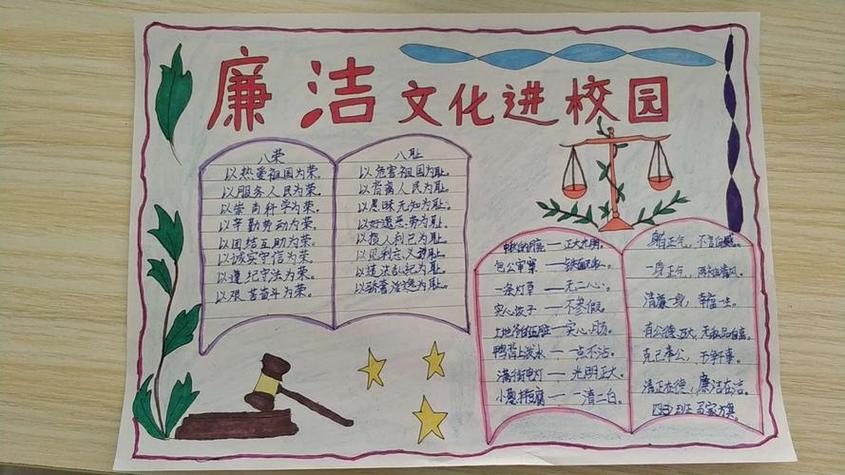 廉洁文化进校园
八荣
以热爱祖国为荣。
以服务人民为荣。
以崇尚科学为荣。
以辛勤劳动为荣。
以团结互助为荣。
以诚实守信为荣。
以遵纪守法为荣。
以艰苦奋斗为荣。
八耻
以危害祖国为耻。
以背离人民为耻。
以愚昧无知为耻。
以好逸恶劳为耻。
以损人利己为耻。
以见利忘义为耻。
以违法乱纪为耻。
以骄奢淫逸为耻。
正大光明。
包公审案——铁面无私。
一条灯草——无二心。
实心饺子——不参假。
实心
鸭背上泼水——一点不沾。
满街电灯——光明正大。
小葱拌豆腐——一清二白。
正气,不言自威。
一身正气,两袖清风。
清廉一身,幸福一生。
克己奉公
廉洁在洁。
班